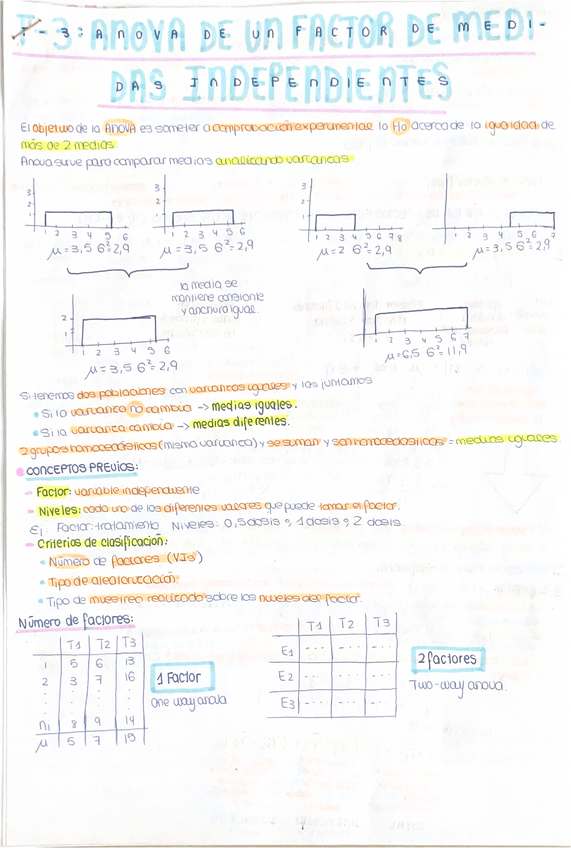 T-3: ANOVA DE UN FACTOR DE MEDI-
DAS INDEPENDIENTES
El objetivo de la ANOVA es someter a comprobación experimental la Ho acerca de la igualdad de
más de 2 medias.
Anova sirve para comparar medias analizando varianzas.
3
2
1
1 2 3 4 5 6
μ=3,5 б²=2,9
3
2
1
1 2 3 4 5 6
μ=3,5 б²=2,9
3
2
1
1 2 3 4 5 6 7 8
μ=2 б²=2,9
μ=3,5 б²=2,9
la media se
mantiene constante
y anchura igual.
2
1
1 2 3 4 5 6
μ=3,5 б²=2,9
1 2 3 4 5 6 7
μ=6,5 б²=11,9
Si tenemos dos poblaciones con varianzas iguales y las juntamos
• Si la varianza no cambia → medias iguales.
• Si la varianza cambia → medias diferentes.
2 grupos homocedásticos (misma varianza) y se suman y son homocedásticos = medias iguales.
• CONCEPTOS PREVIOS:
- Factor: variable independiente
- Niveles: cada uno de los diferentes valores que puede tomar el factor.
Ej: Factor: tratamiento Niveles: 0,5 dosis, 1 dosis, 2 dosis.
- Criterios de clasificación:
• Número de factores (VIs)
• Tipo de aleatorización.
• Tipo de muestreo realizado sobre los niveles del factor.
Número de factores:
T1 T2 T3
1 5 6 13
2 3 7 16
n1 8 9 14
μ 5 7 15
1 Factor
One way anova
T1 T2 T3
E1 --- --- ---
E2 --- --- ---
E3 --- --- ---
2 factores
Two-way anova.